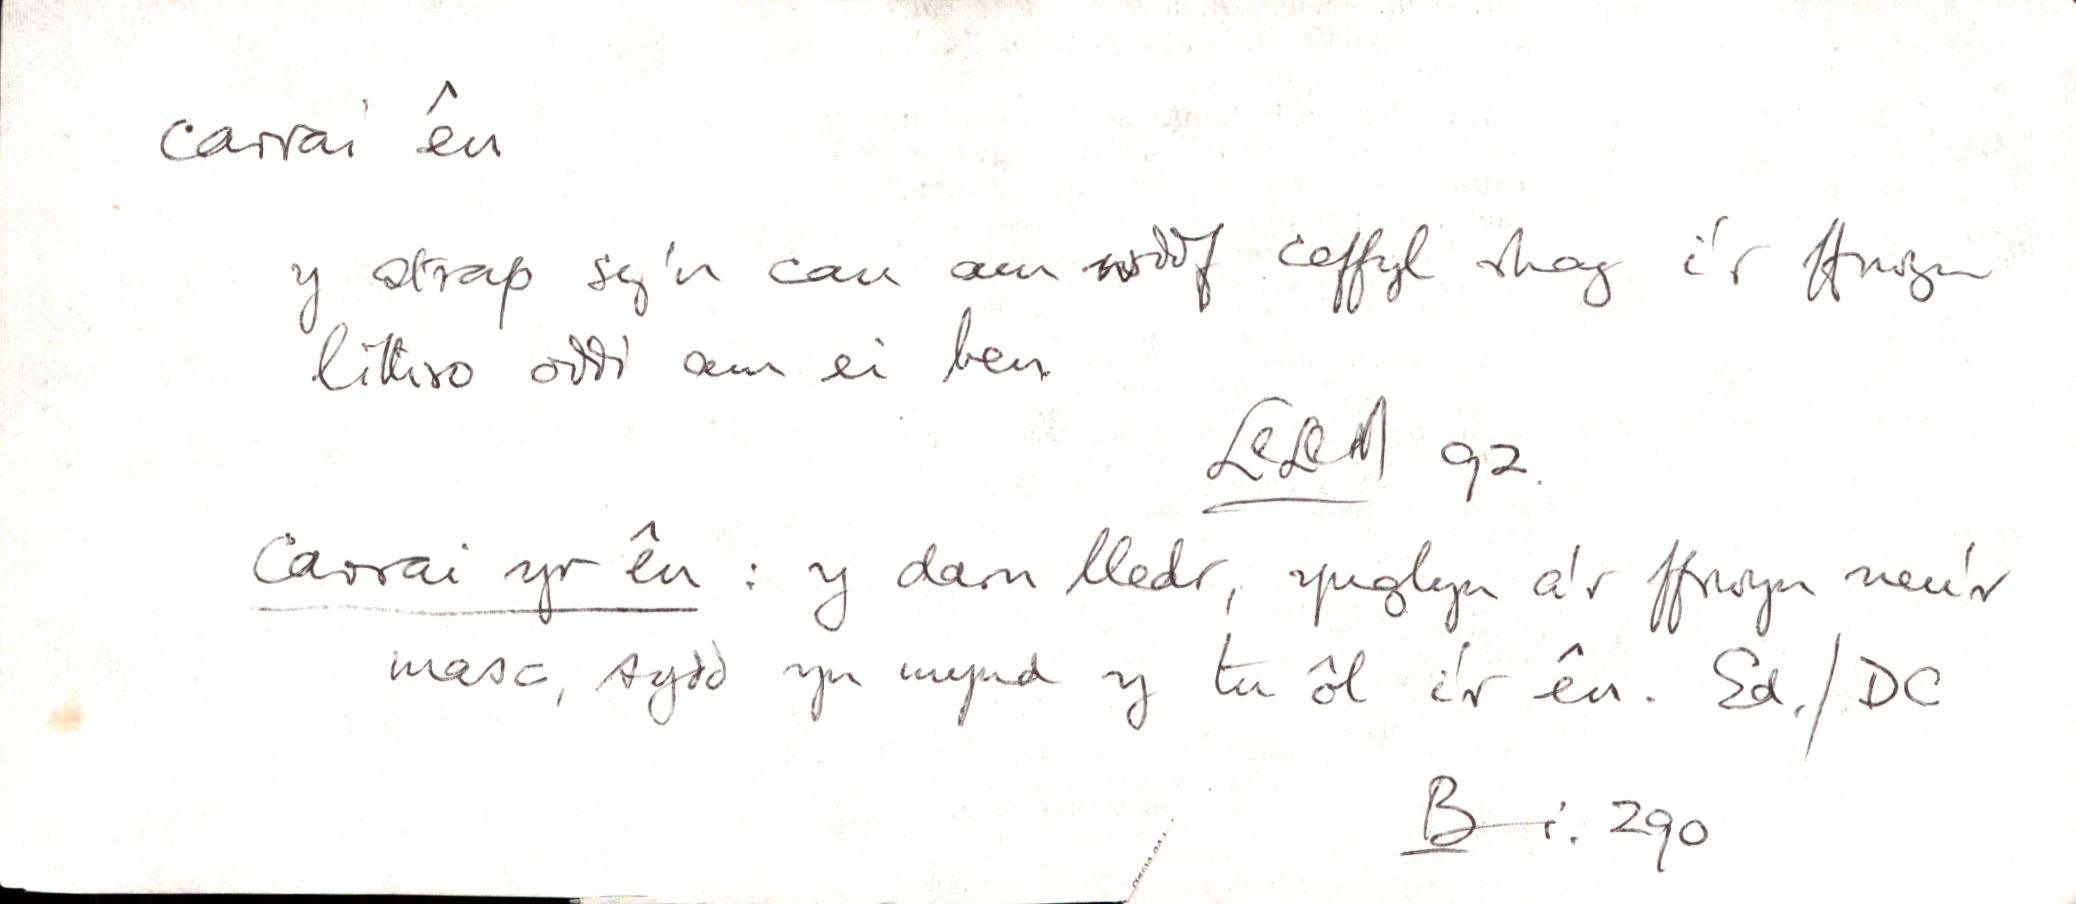 carrai ên
y strap sy'n cau am wddf ceffyl rhag i'r ffrwyn
lithro oddi am ei ben.
LlLlM 92.
Carrai yr ên : y darn lledr, ynglyn a'r ffrwyn neu'r
masc, sydd yn mynd y tu ôl i'r ên. Ed./DC
B i. 290